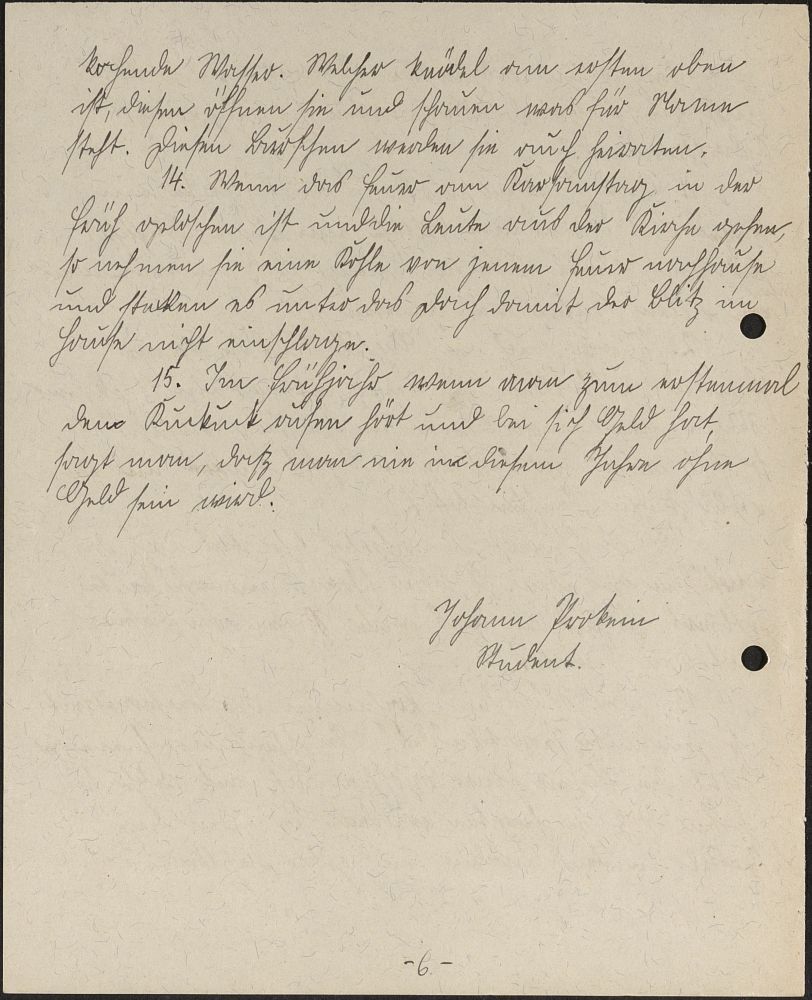 kochende Wasser. Welcher Knödel am ersten oben
ist, diesen öffnen sie und schauen was für Name
steht. Diesen Burschen werden sie auch heiraten.
14. Wenn das Feuer am Karsamstag in der
Früh geloschen ist und die Leute aus der Kirche gehen,
so nehmen sie eine Kohle von jenem Feuer nachhause
und stecken es unter das Dach damit der Blitz im
Hause nicht einschlage.
15. Im Frühjahr wenn man zum erstenmal
den Kuckuck rufen hört und bei sich Geld hat,
sagt man, daß man nie in diesem Jahre ohne
Geld sein wird.
Johann Prokein
Student.
-6.-